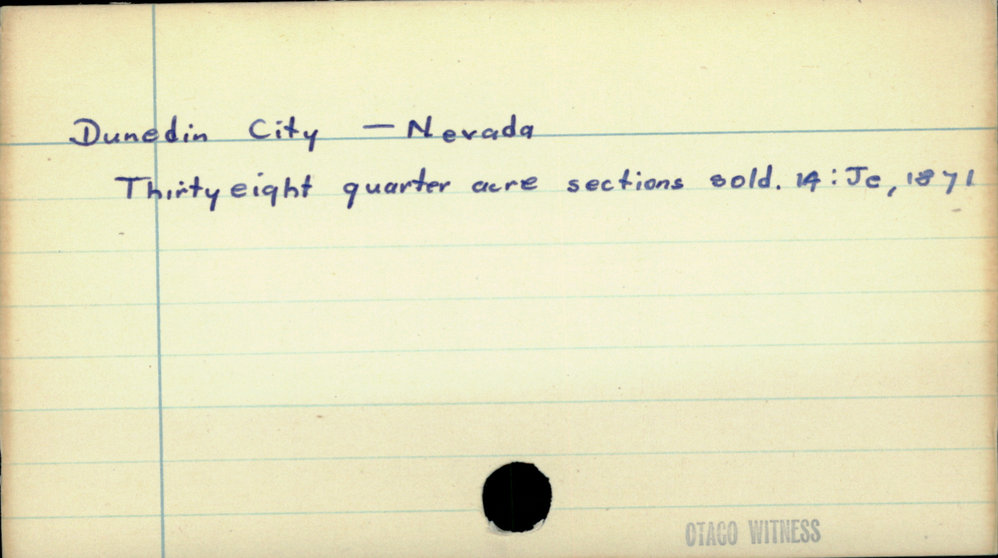 Dunedin City — Nevada
Thirty eight quarter acre sections sold. 14 : Je, 1871
OTAGO WITNESS